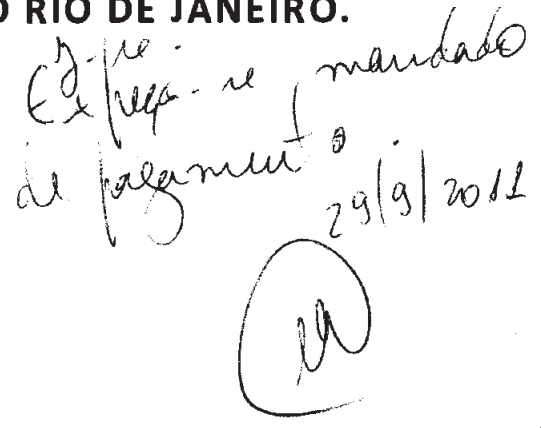 O RIO DE JANEIRO.
J-se.
Expeça-se mandado
de pagamento.
29/9/2011